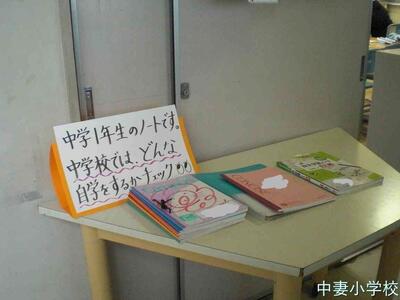 中学1年生のノートです。
中学校では、どんな
自学をするかチェック
中妻小学校